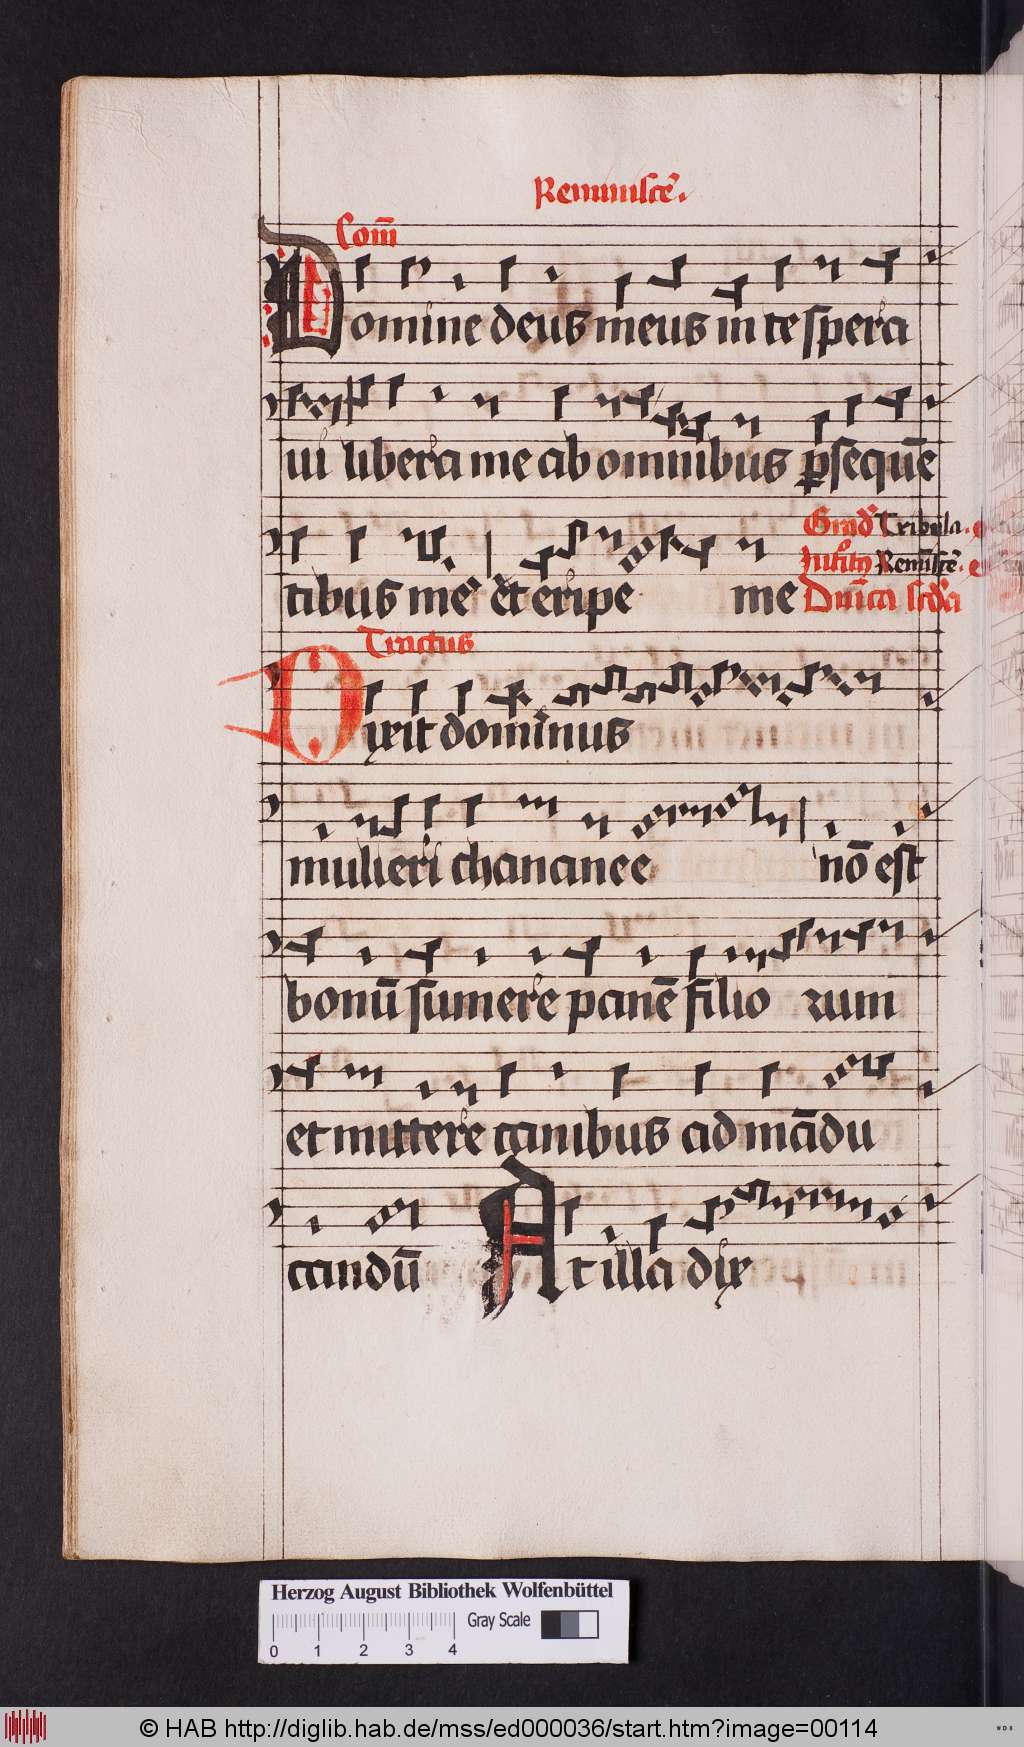 Reminiscē.
Com̄
Domine deus meus in te spera
ui libera me ab omnibus ꝑsequē
tibus me et eripe me
Grad᷒ Tribula.
Introitꝰ Reminiscē.
Dnīca scďa
Tractus
Dixit dominus
mulieri chananee nō est
bonū sumere panē filio rum
et mittere canibus ad mādu
candū At illa dix
Herzog August Bibliothek Wolfenbüttel
Gray Scale
0 1 2 3 4
© HAB http://diglib.hab.de/mss/ed000036/start.htm?image=00114